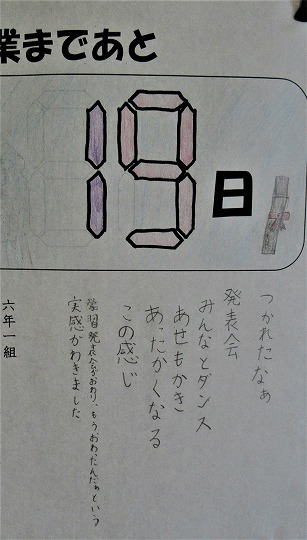 業まであと
19日
つかれたなぁ
発表会
みんなとダンス
あせもかき
あったかくなる
この感じ
学習発表会がおわり、もう、おわったんだなという
実感がわきました
六年一組